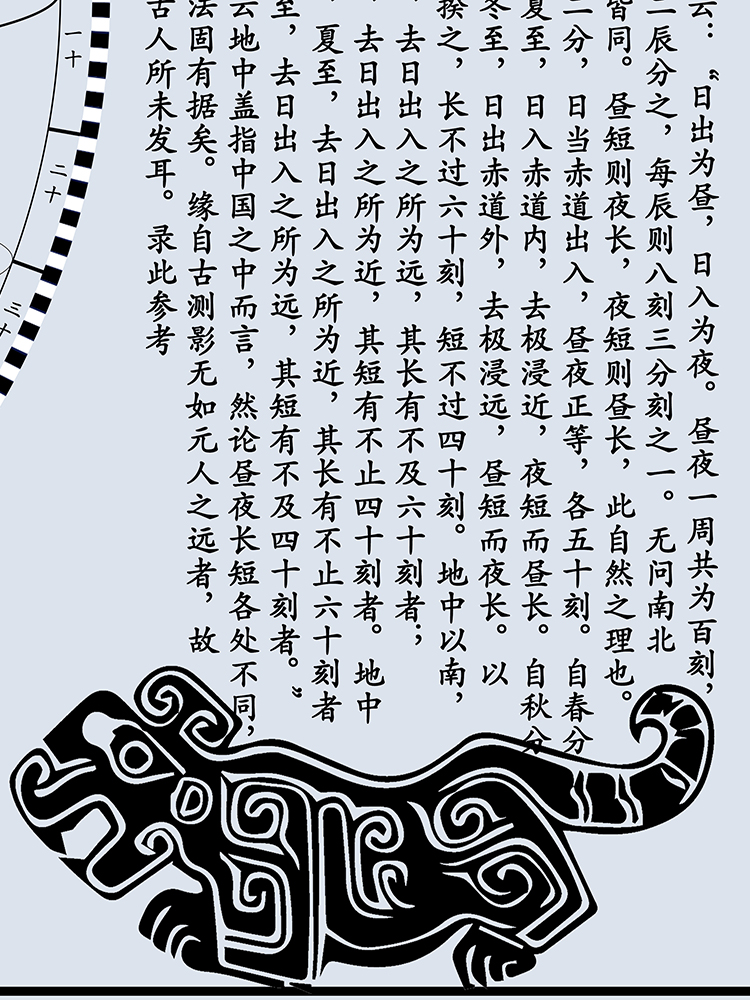 云：“日出为昼，日入为夜。昼夜一周共为百刻，
二辰分之，每辰则八刻三分刻之一。无问南北
皆同。昼短则夜长，夜短则昼长，此自然之理也。
二分，日当赤道出入，昼夜正等，各五十刻。自春分
夏至，日入赤道内，去极浸近，夜短而昼长。自秋分
冬至，日出赤道外，去极浸远，昼短而夜长。以
揆之，长不过六十刻，短不过四十刻。地中以南，
，去日出入之所为远，其长有不及六十刻者；
，去日出入之所为近，其短有不止四十刻者。地中
，夏至，去日出入之所为近，其长有不止六十刻者
至，去日出入之所为远，其短有不及四十刻者。”
云地中盖指中国之中而言，然论昼夜长短各处不同，
法固有据矣。缘自古测影无如元人之远者，故
古人所未发耳。录此参考
一十
二十
三十